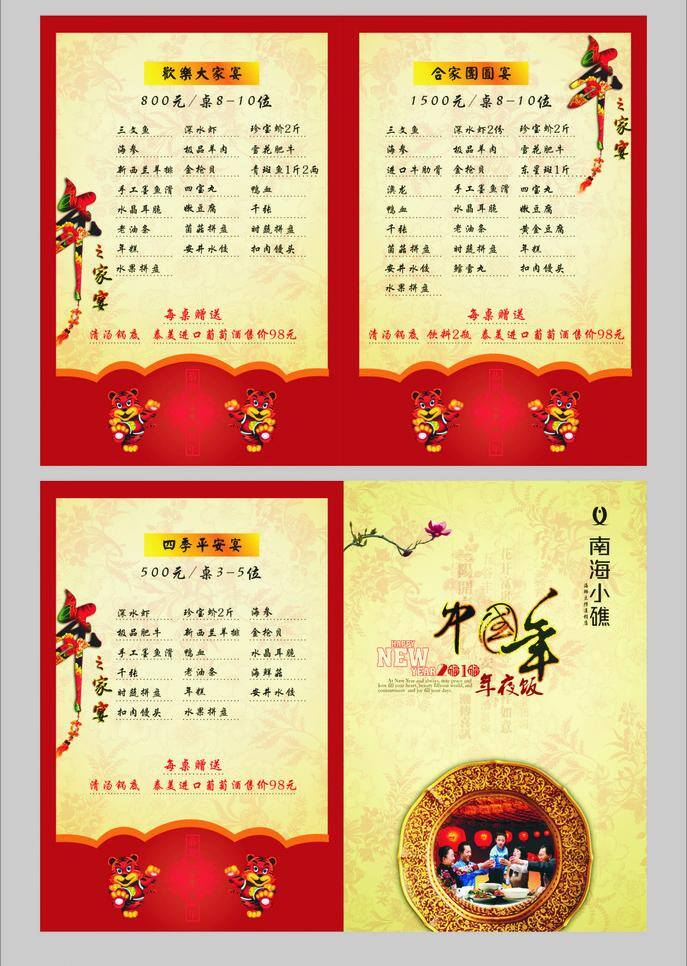 歡樂大家宴
800元/桌8-10位
三文鱼 深水虾 珍宝蚧2斤
海参 极品羊肉 雪花肥牛
新西兰羊排 金抢贝 青斑鱼1斤2两
手工墨鱼滑 四宝丸 鸭血
水晶耳脆 嫩豆腐 千张
老油条 菌菇拼盘 时蔬拼盘
年糕 安井水饺 扣肉馒头
水果拼盘
年之家宴
每桌赠送
清汤锅底 泰美进口葡萄酒售价98元
合家團圓宴
1500元/桌8-10位
三文鱼 深水虾2份 珍宝蚧2斤
海参 极品羊肉 雪花肥牛
进口牛肋骨 金抢贝 东星斑1斤
澳龙 手工墨鱼滑 四宝丸
鸭血 水晶耳脆 嫩豆腐
千张 老油条 黄金豆腐
菌菇拼盘 时蔬拼盘 年糕
安井水饺 鳕雪丸 扣肉馒头
水果拼盘
年之家宴
每桌赠送
清汤锅底 饮料2瓶 泰美进口葡萄酒售价98元
四季平安宴
500元/桌3-5位
深水虾 珍宝蚧2斤 海参
极品肥牛 新西兰羊排 金抢贝
手工墨鱼滑 鸭血 水晶耳脆
千张 老油条 海鲜菇
时蔬拼盘 年糕 安井水饺
扣肉馒头 水果拼盘
年之家宴
每桌赠送
清汤锅底 泰美进口葡萄酒售价98元
南海小礁
中國年
HAPPY
NEW
YEAR 2010
At New Year and always, may peace and
love fill your heart, beauty fill your world, and
contentment and joy fill your days.
年夜饭